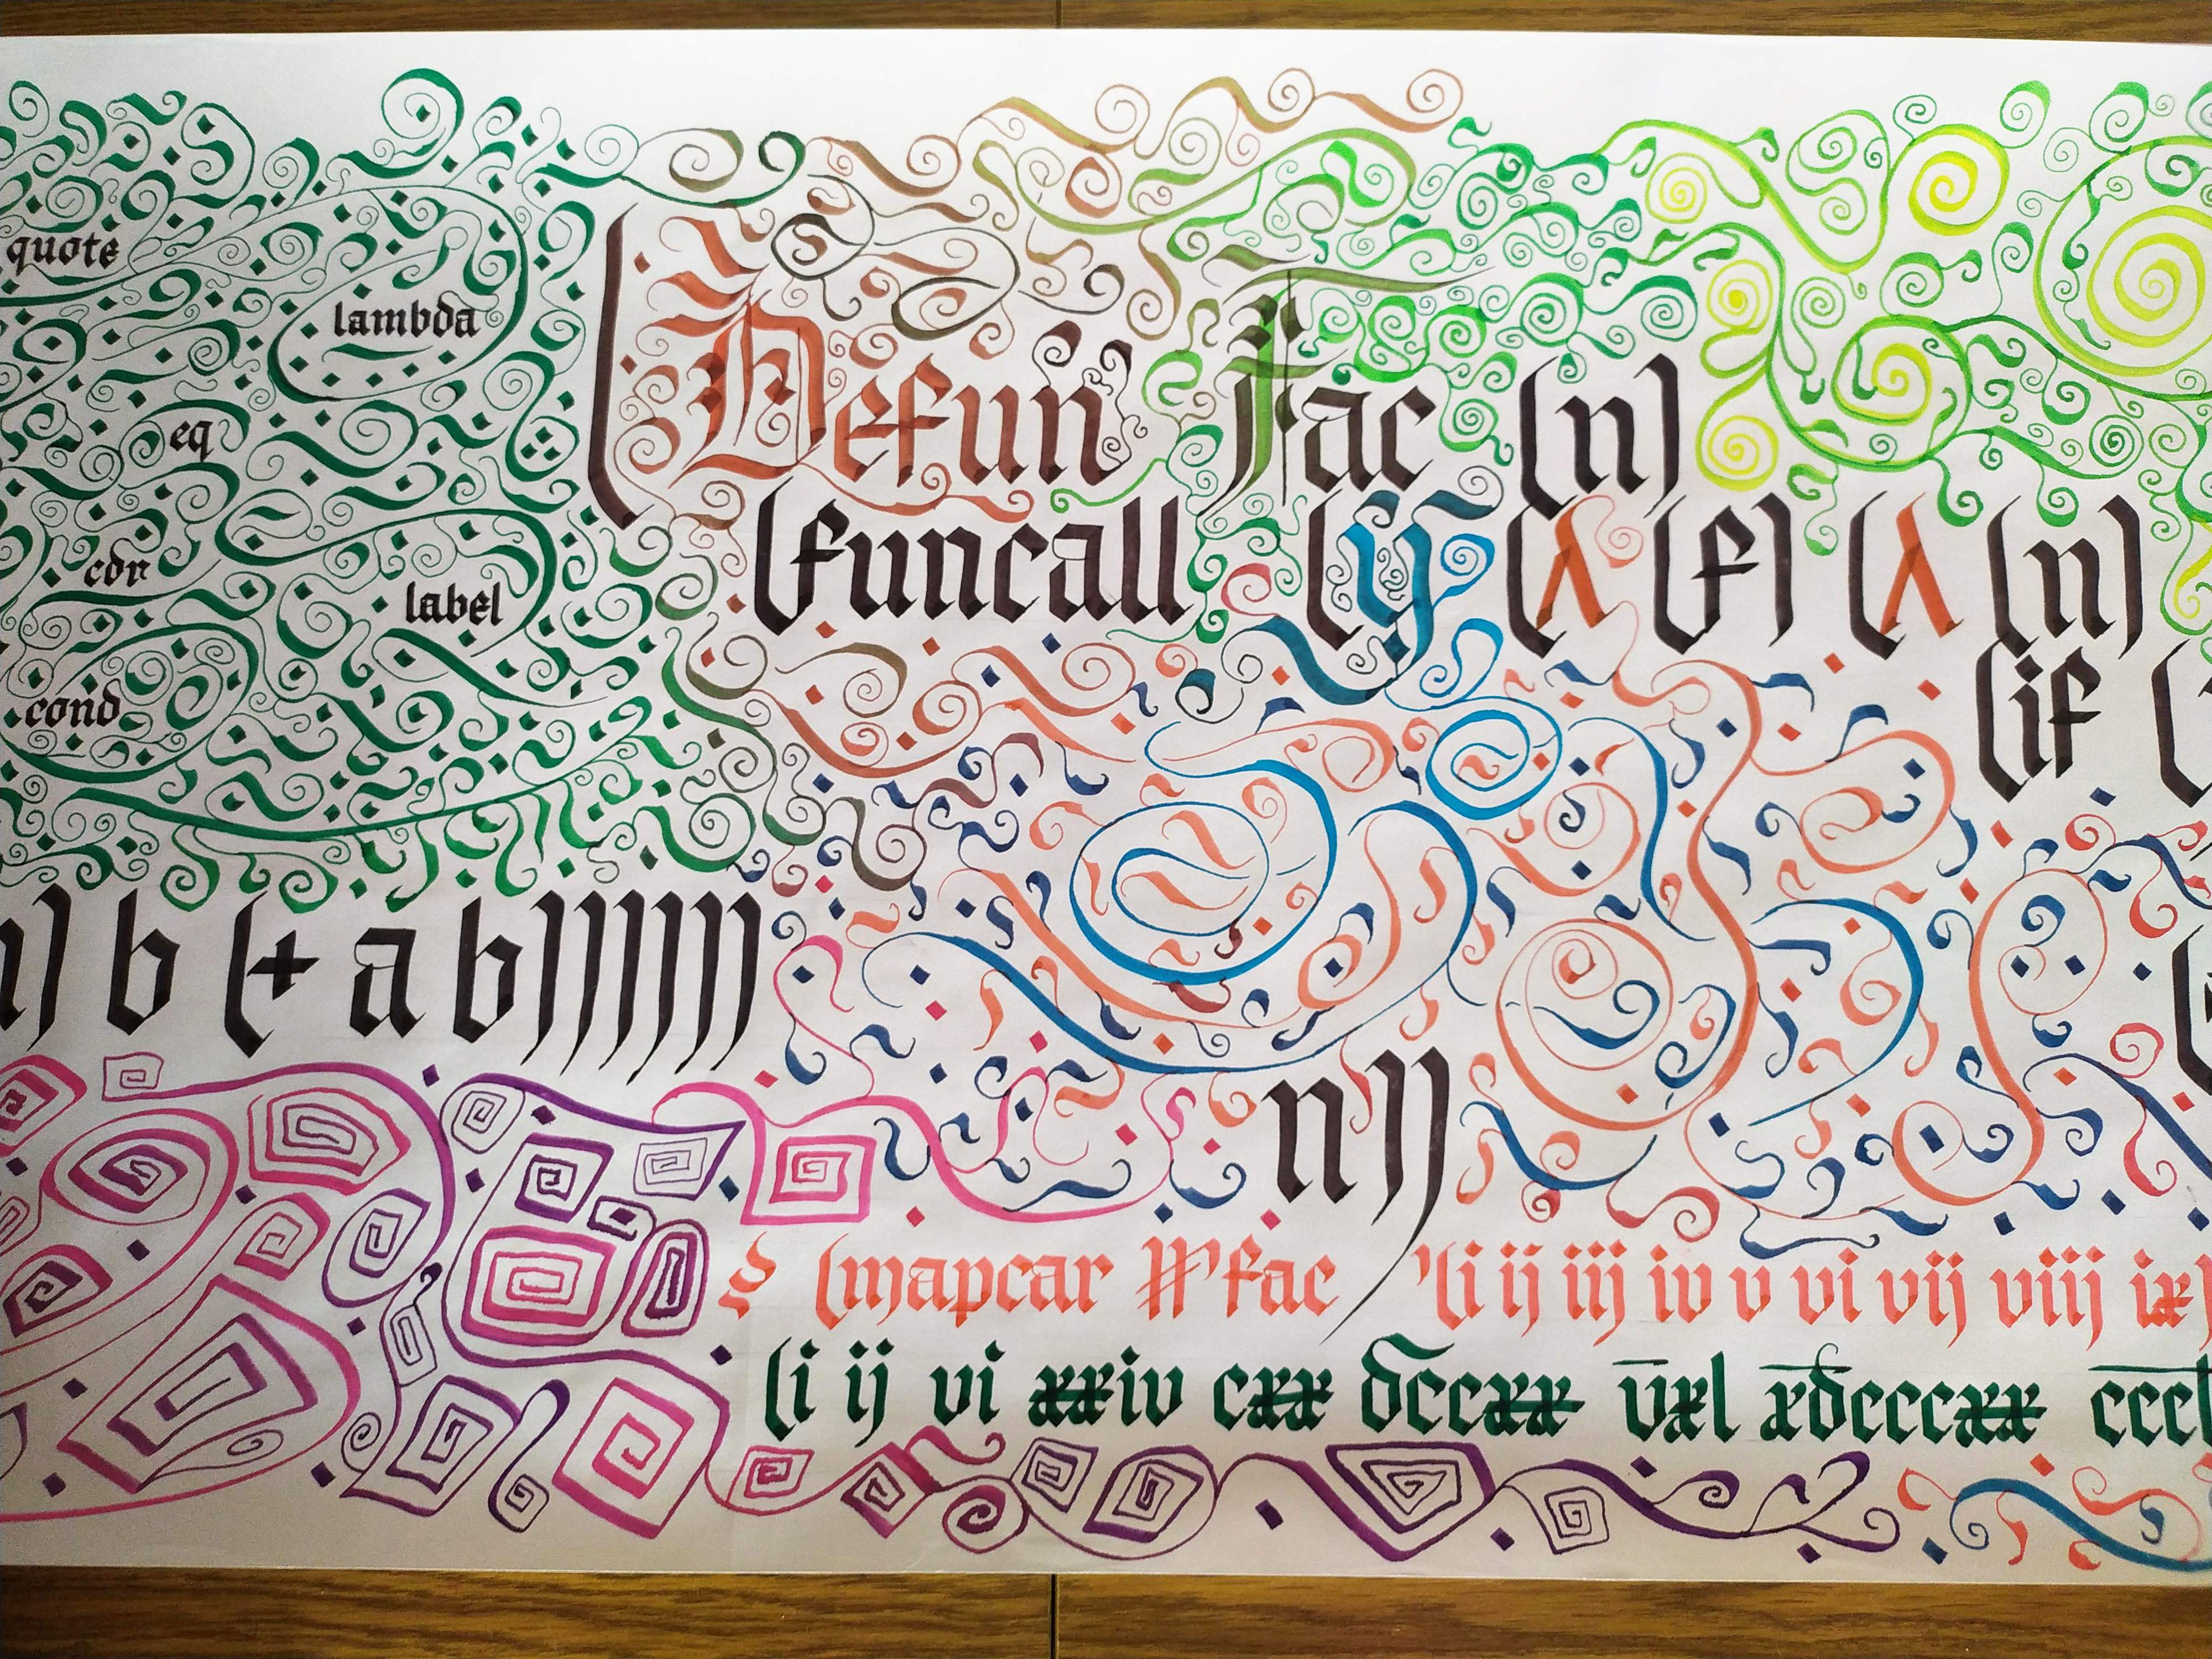 quote
lambda
eq
cdr
label
cond
(Defun Fac (n)
(funcall (y (λ (f) (λ (n)
(if (
n) b (+ a b))))))
n))
(mapcar #'fac '(i ij iij iv v vi vij viij ix
(i ij vi xxiv cxx dccxx v̅xl x̅dcccxx